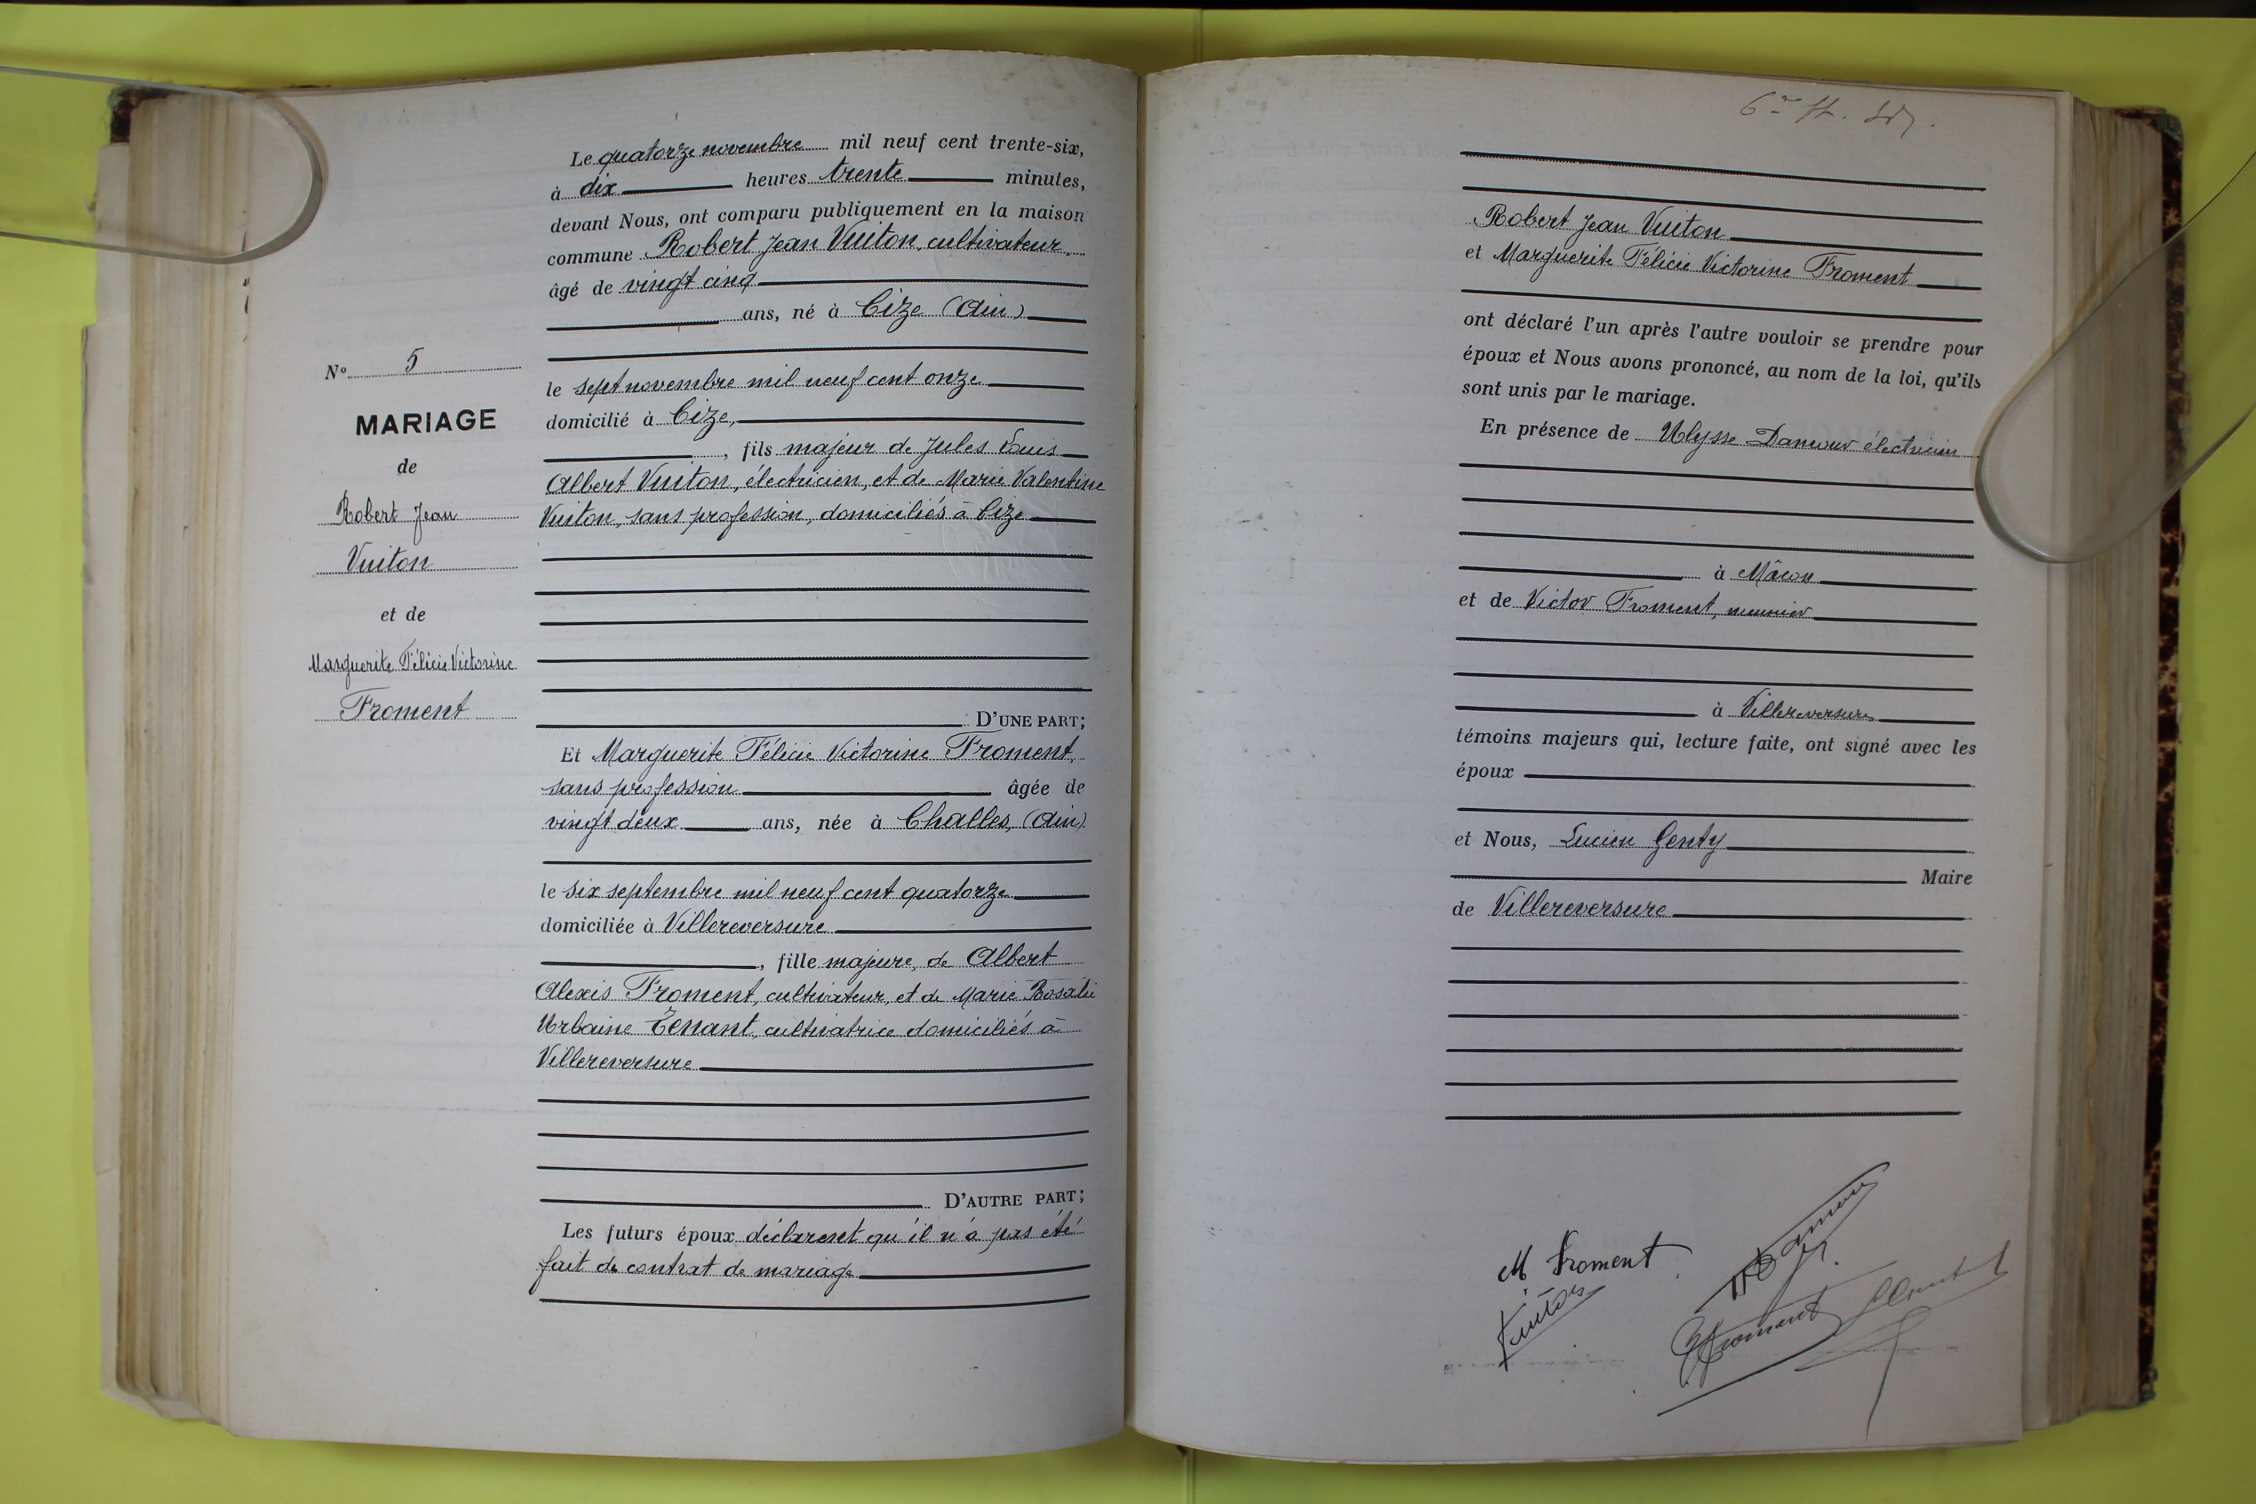 Nº 5
MARIAGE
de
Robert Jean
Vuiton
et de
Marguerite Félicie Victorine
Froment
Le quatorze novembre mil neuf cent trente-six,
à dix heures trente minutes,
devant Nous, ont comparu publiquement en la maison
commune Robert Jean Vuiton, cultivateur,
âgé de vingt cinq
ans, né à Cize (Ain)
le sept novembre mil neuf cent onze
domicilié à Cize,
, fils majeur de Jules Louis
Albert Vuiton, électricien, et de Marie Valentine
Vuiton, sans profession, domiciliés à Cize
D'UNE PART;
Et Marguerite Félicie Victorine Froment,
sans profession âgée de
vingt deux ans, née à Challes, (Ain)
le six septembre mil neuf cent quatorze
domiciliée à Villereversure
, fille majeure, de Albert
Alexis Froment, cultivateur, et de Marie Rosalie
Urbaine Tenant, cultivatrice domiciliés à
Villereversure
D'AUTRE PART;
Les futurs époux déclarent qu'il n'a pas été
fait de contrat de mariage
Robert Jean Vuiton
et Marguerite Félicie Victorine Froment
ont déclaré l'un après l'autre vouloir se prendre pour
époux et Nous avons prononcé, au nom de la loi, qu'ils
sont unis par le mariage.
En présence de Ulysse Damour électricien
à Mâcon
et de Victor Froment, meunier
à Villereversure
témoins majeurs qui, lecture faite, ont signé avec les
époux
et Nous, Lucien Genty
Maire
de Villereversure
M Froment
Vuiton
Damour
Froment